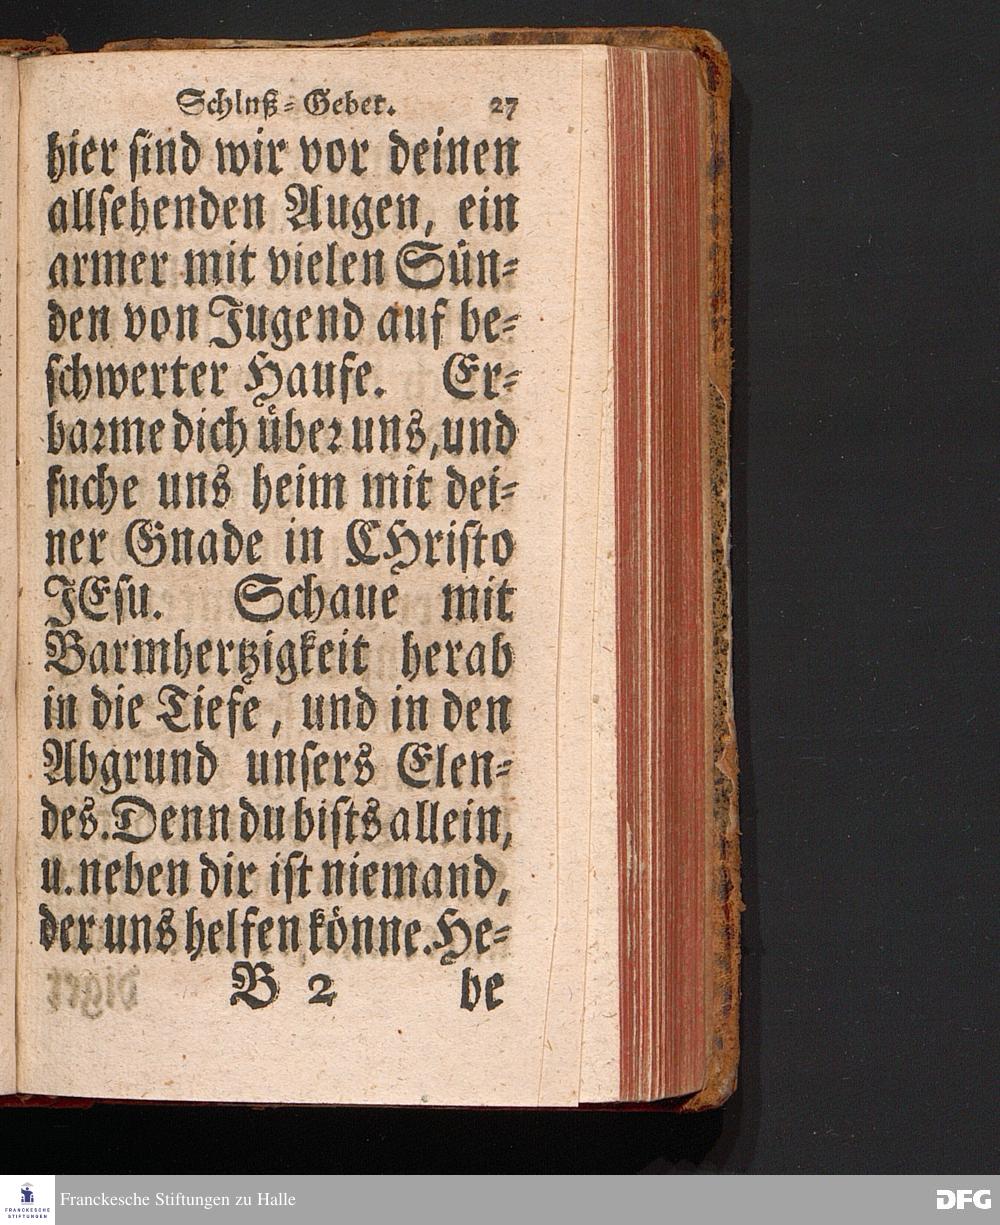 Schluß-Gebet. 27
hier sind wir vor deinen
allsehenden Augen, ein
armer mit vielen Sün-
den von Jugend auf be-
schwerter Haufe. Er-
barme dich über uns, und
suche uns heim mit dei-
ner Gnade in CHristo
JEsu. Schaue mit
Barmhertzigkeit herab
in die Tiefe, und in den
Abgrund unsers Elen-
des. Denn du bists allein,
u. neben dir ist niemand,
der uns helfen könne. He-
B 2 be
FRANCKESCHE
STIFTUNGEN
Franckesche Stiftungen zu Halle
DFG